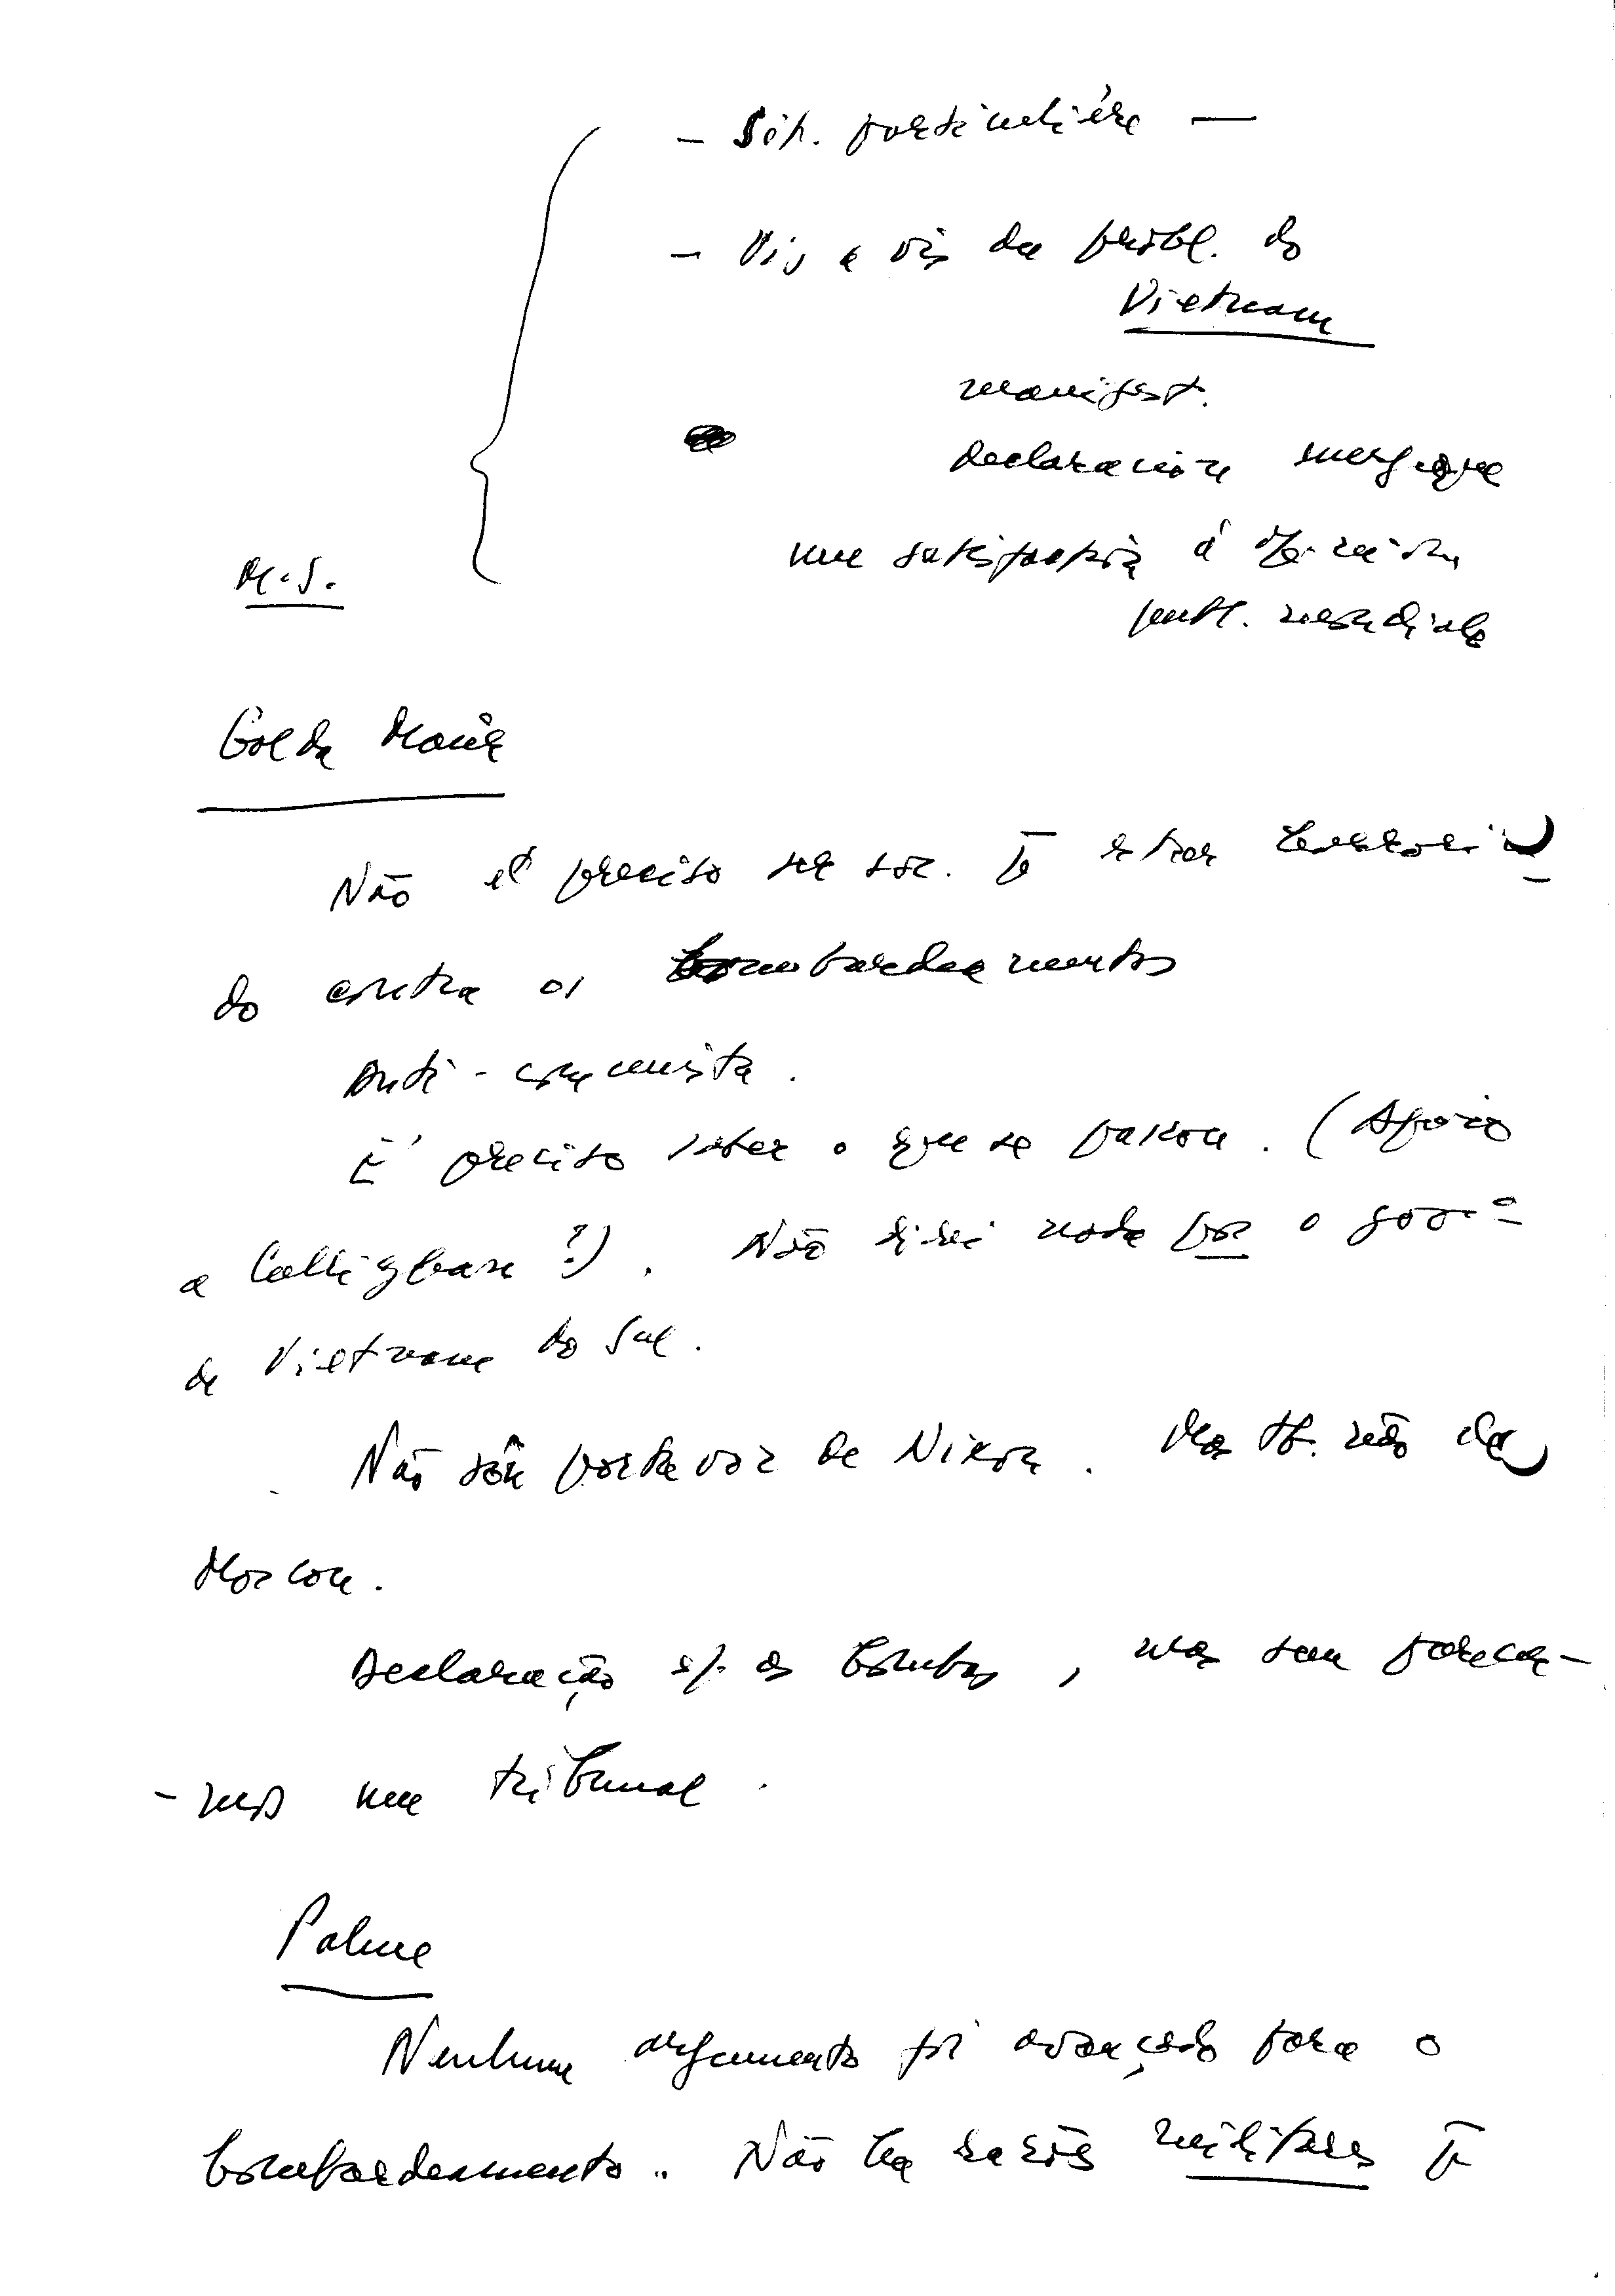 - Sit. particulière -
- Vis a vis du probl. do
Vietnam
manifest.
declaracion energique
une satisfaction à opinion
publ. mondiale
M.S.
Golda Meir
Não é preciso ser soc. p estar
do contra os bombardeamentos
Anti-comunista.
É preciso saber o que se passou. (Apoio
a). Não direi nada por o gov-o
de Vietnam do Sul.
Não sou porta voz de Nixon. Mas tb. não de
Moscou.
Declaração s/. os bombs, mas sem parecer-
-mos um tribunal.
Palme
Nenhum argumento foi avançado para o
bombardeamento. Não há razões militares p